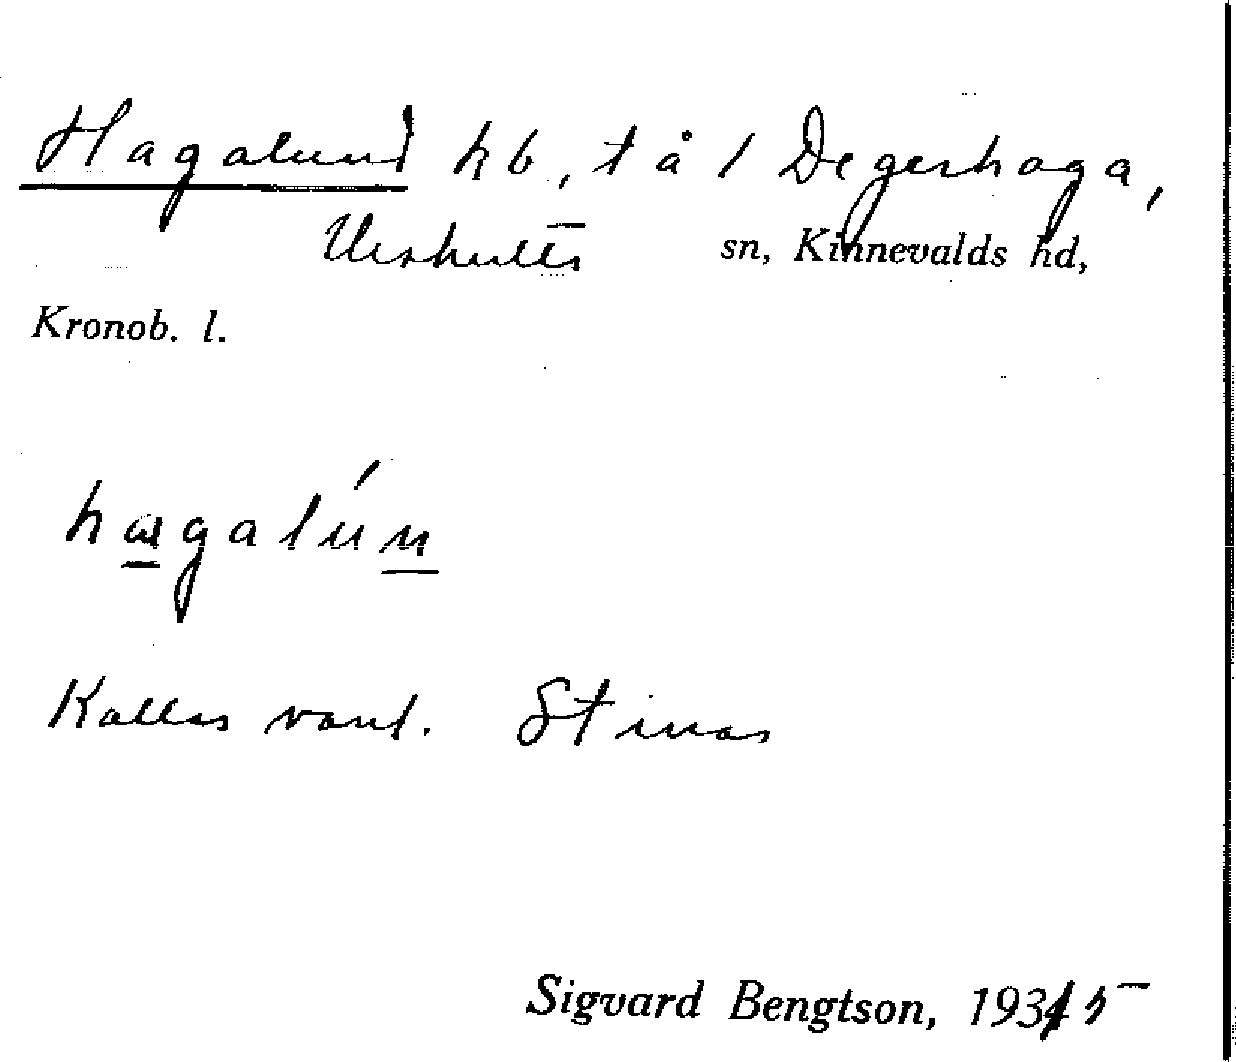 Hagalund hb, t å 1 Degerhaga,
Urshults sn, Kinnevalds hd,
Kronob. l.
hagalún
Kallas vanl. Stinas
Sigvard Bengtson, 1935